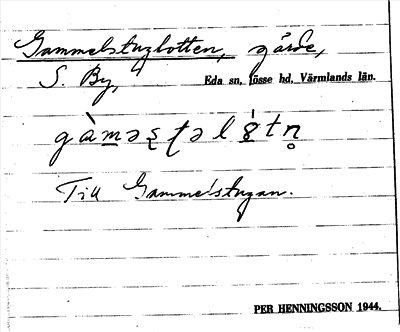 Gammelstuglotten, gärde,
S. By, Eda sn, Jösse hd, Värmlands län.
Till Gammelstugan.
PER HENNINGSSON 1944.